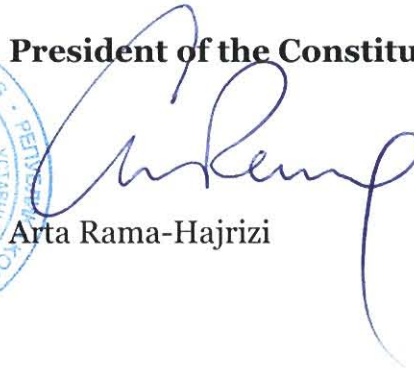 President of the Constitu
Arta Rama-Hajrizi